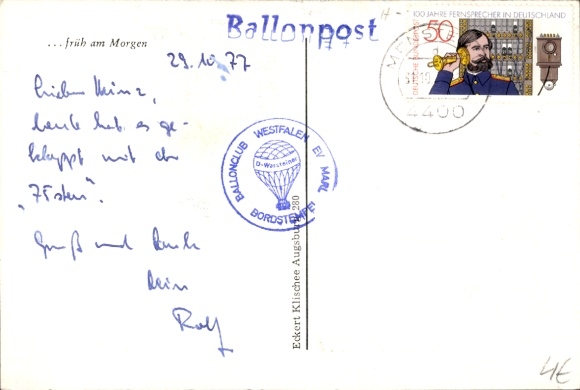 Ballonpost
... früh am Morgen
29.10.77
Lieber Heinz,
heute hat es ge-
klappt mit der
"75sten".
Gruß und Dank
Dein
Rolf
BALLONCLUB WESTFALEN EV MARL
D-Warsteiner
BORDSTEMPEL
Eckert Klischee Augsburg 280
100 JAHRE FERNSPRECHER IN DEUTSCHLAND
50
DEUTSCHE BUNDESPOST
4400
4€